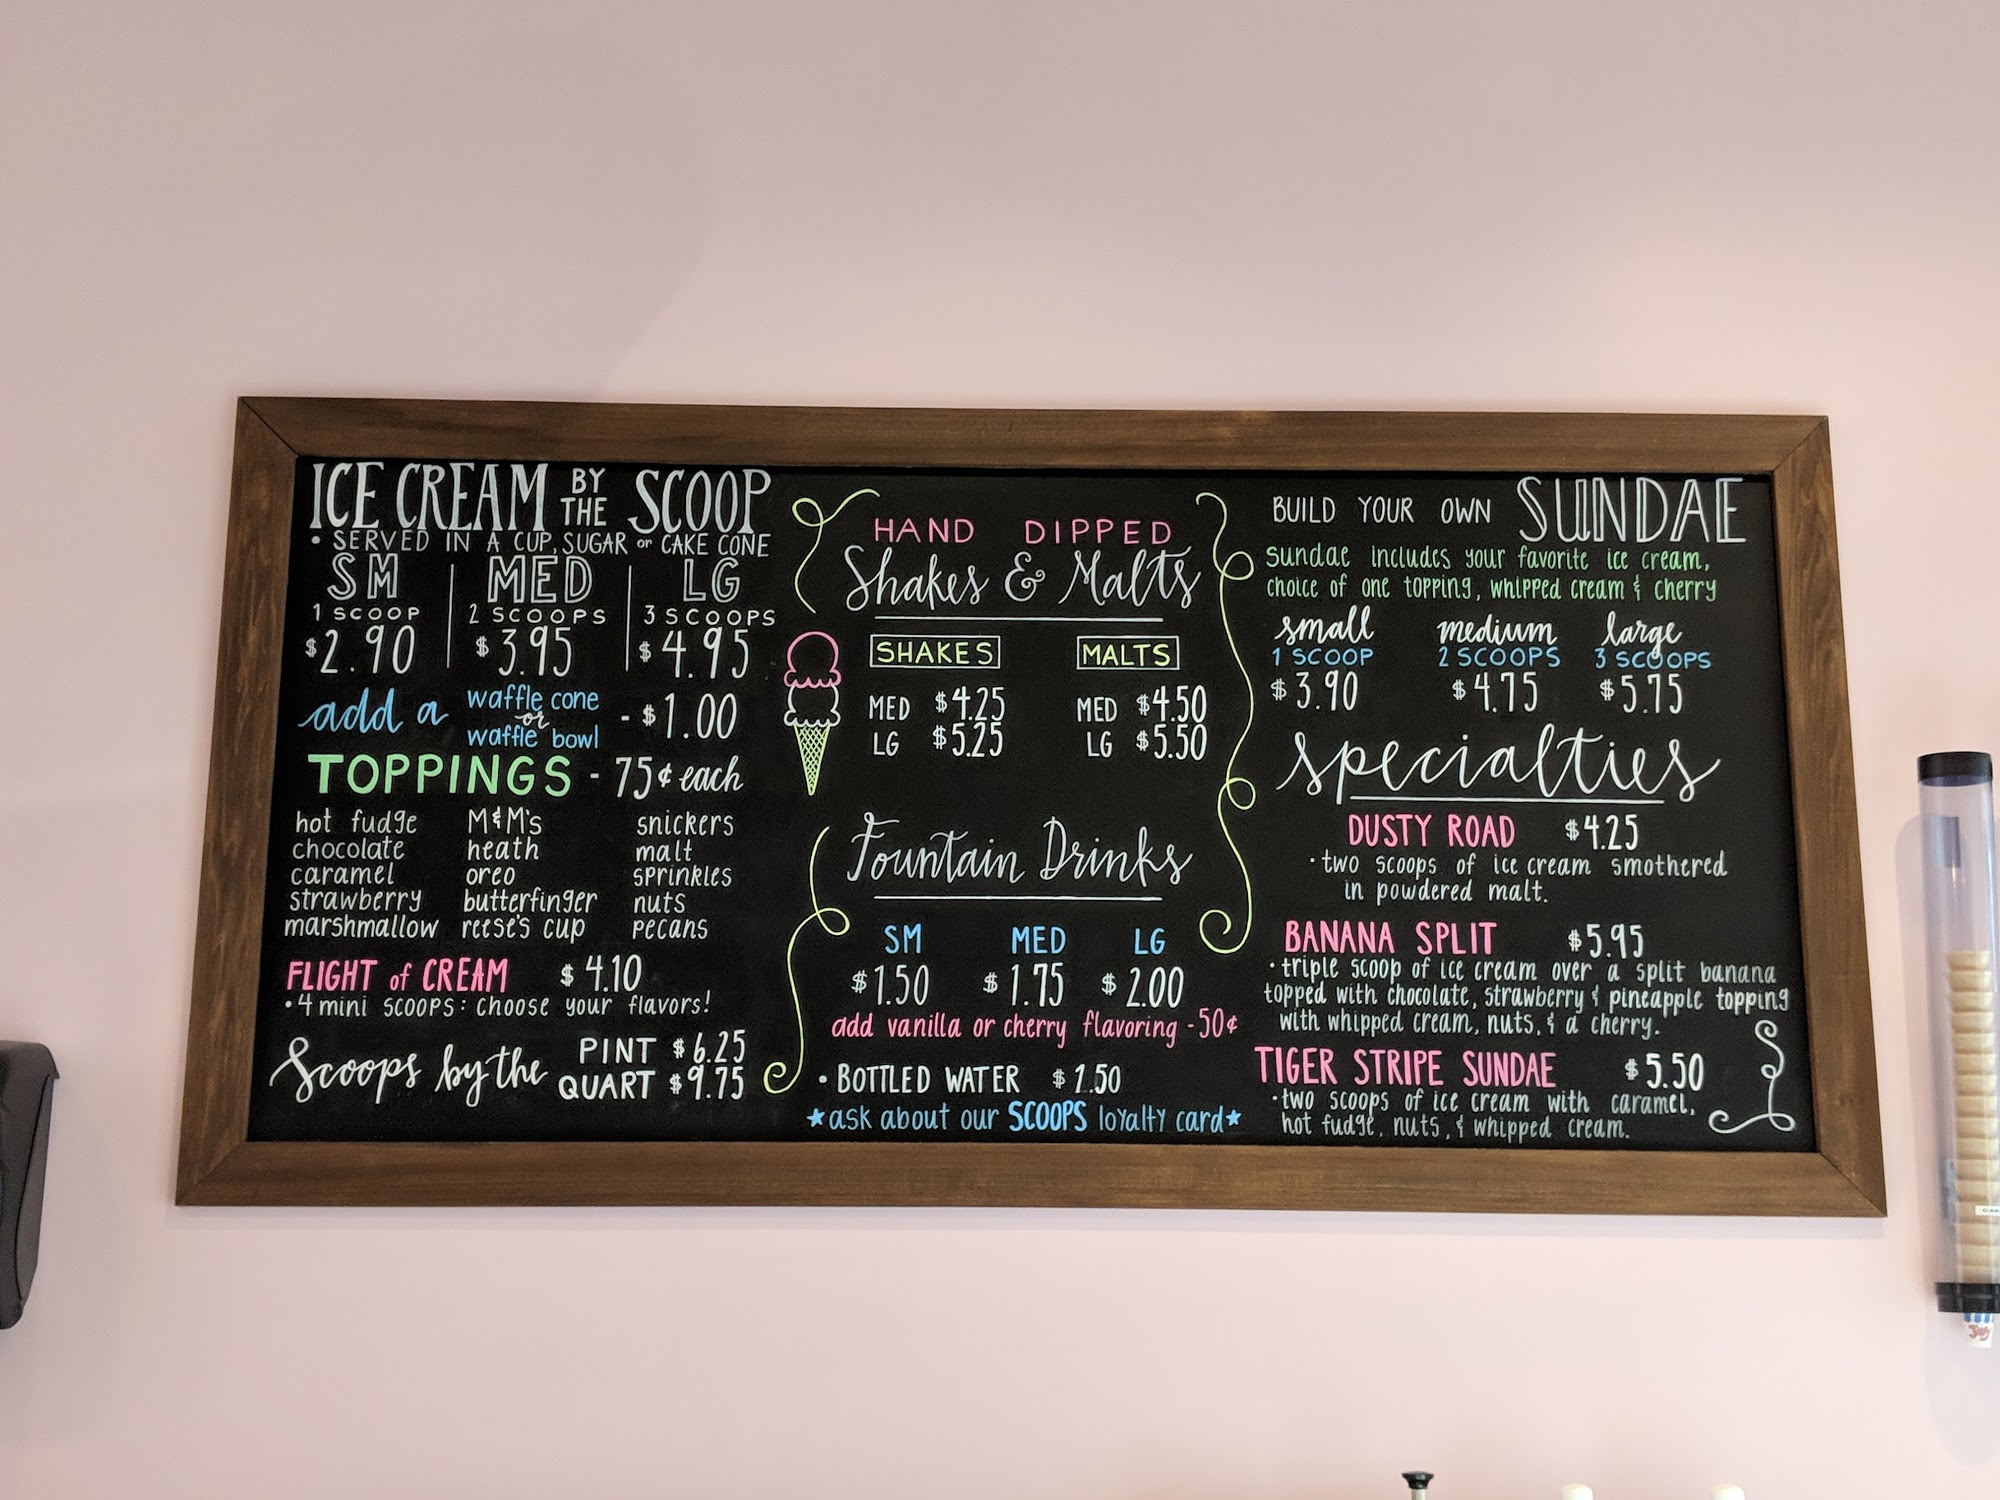 ICE CREAM BY THE SCOOP
• SERVED IN A CUP, SUGAR or CAKE CONE
SM MED LG
1 SCOOP 2 SCOOPS 3 SCOOPS
$2.90 $3.95 $4.95
add a waffle cone or waffle bowl - $1.00
TOPPINGS - 75¢ each
hot fudge M&M's snickers
chocolate heath malt
caramel oreo sprinkles
strawberry butterfinger nuts
marshmallow reese's cup pecans
FLIGHT of CREAM $4.10
• 4 mini scoops: choose your flavors!
Scoops by the PINT $6.25
QUART $9.75
HAND DIPPED
Shakes & Malts
SHAKES MALTS
MED $4.25 MED $4.50
LG $5.25 LG $5.50
Fountain Drinks
SM MED LG
$1.50 $1.75 $2.00
add vanilla or cherry flavoring - 50¢
• BOTTLED WATER $1.50
★ask about our SCOOPS loyalty card★
BUILD YOUR OWN SUNDAE
sundae includes your favorite ice cream,
choice of one topping, whipped cream & cherry
small medium large
1 SCOOP 2 SCOOPS 3 SCOOPS
$3.90 $4.75 $5.75
specialties
DUSTY ROAD $4.25
• two scoops of ice cream smothered
in powdered malt.
BANANA SPLIT $5.95
• triple scoop of ice cream over a split banana
topped with chocolate, strawberry & pineapple topping
with whipped cream, nuts, & a cherry.
TIGER STRIPE SUNDAE $5.50
• two scoops of ice cream with caramel,
hot fudge, nuts, & whipped cream.